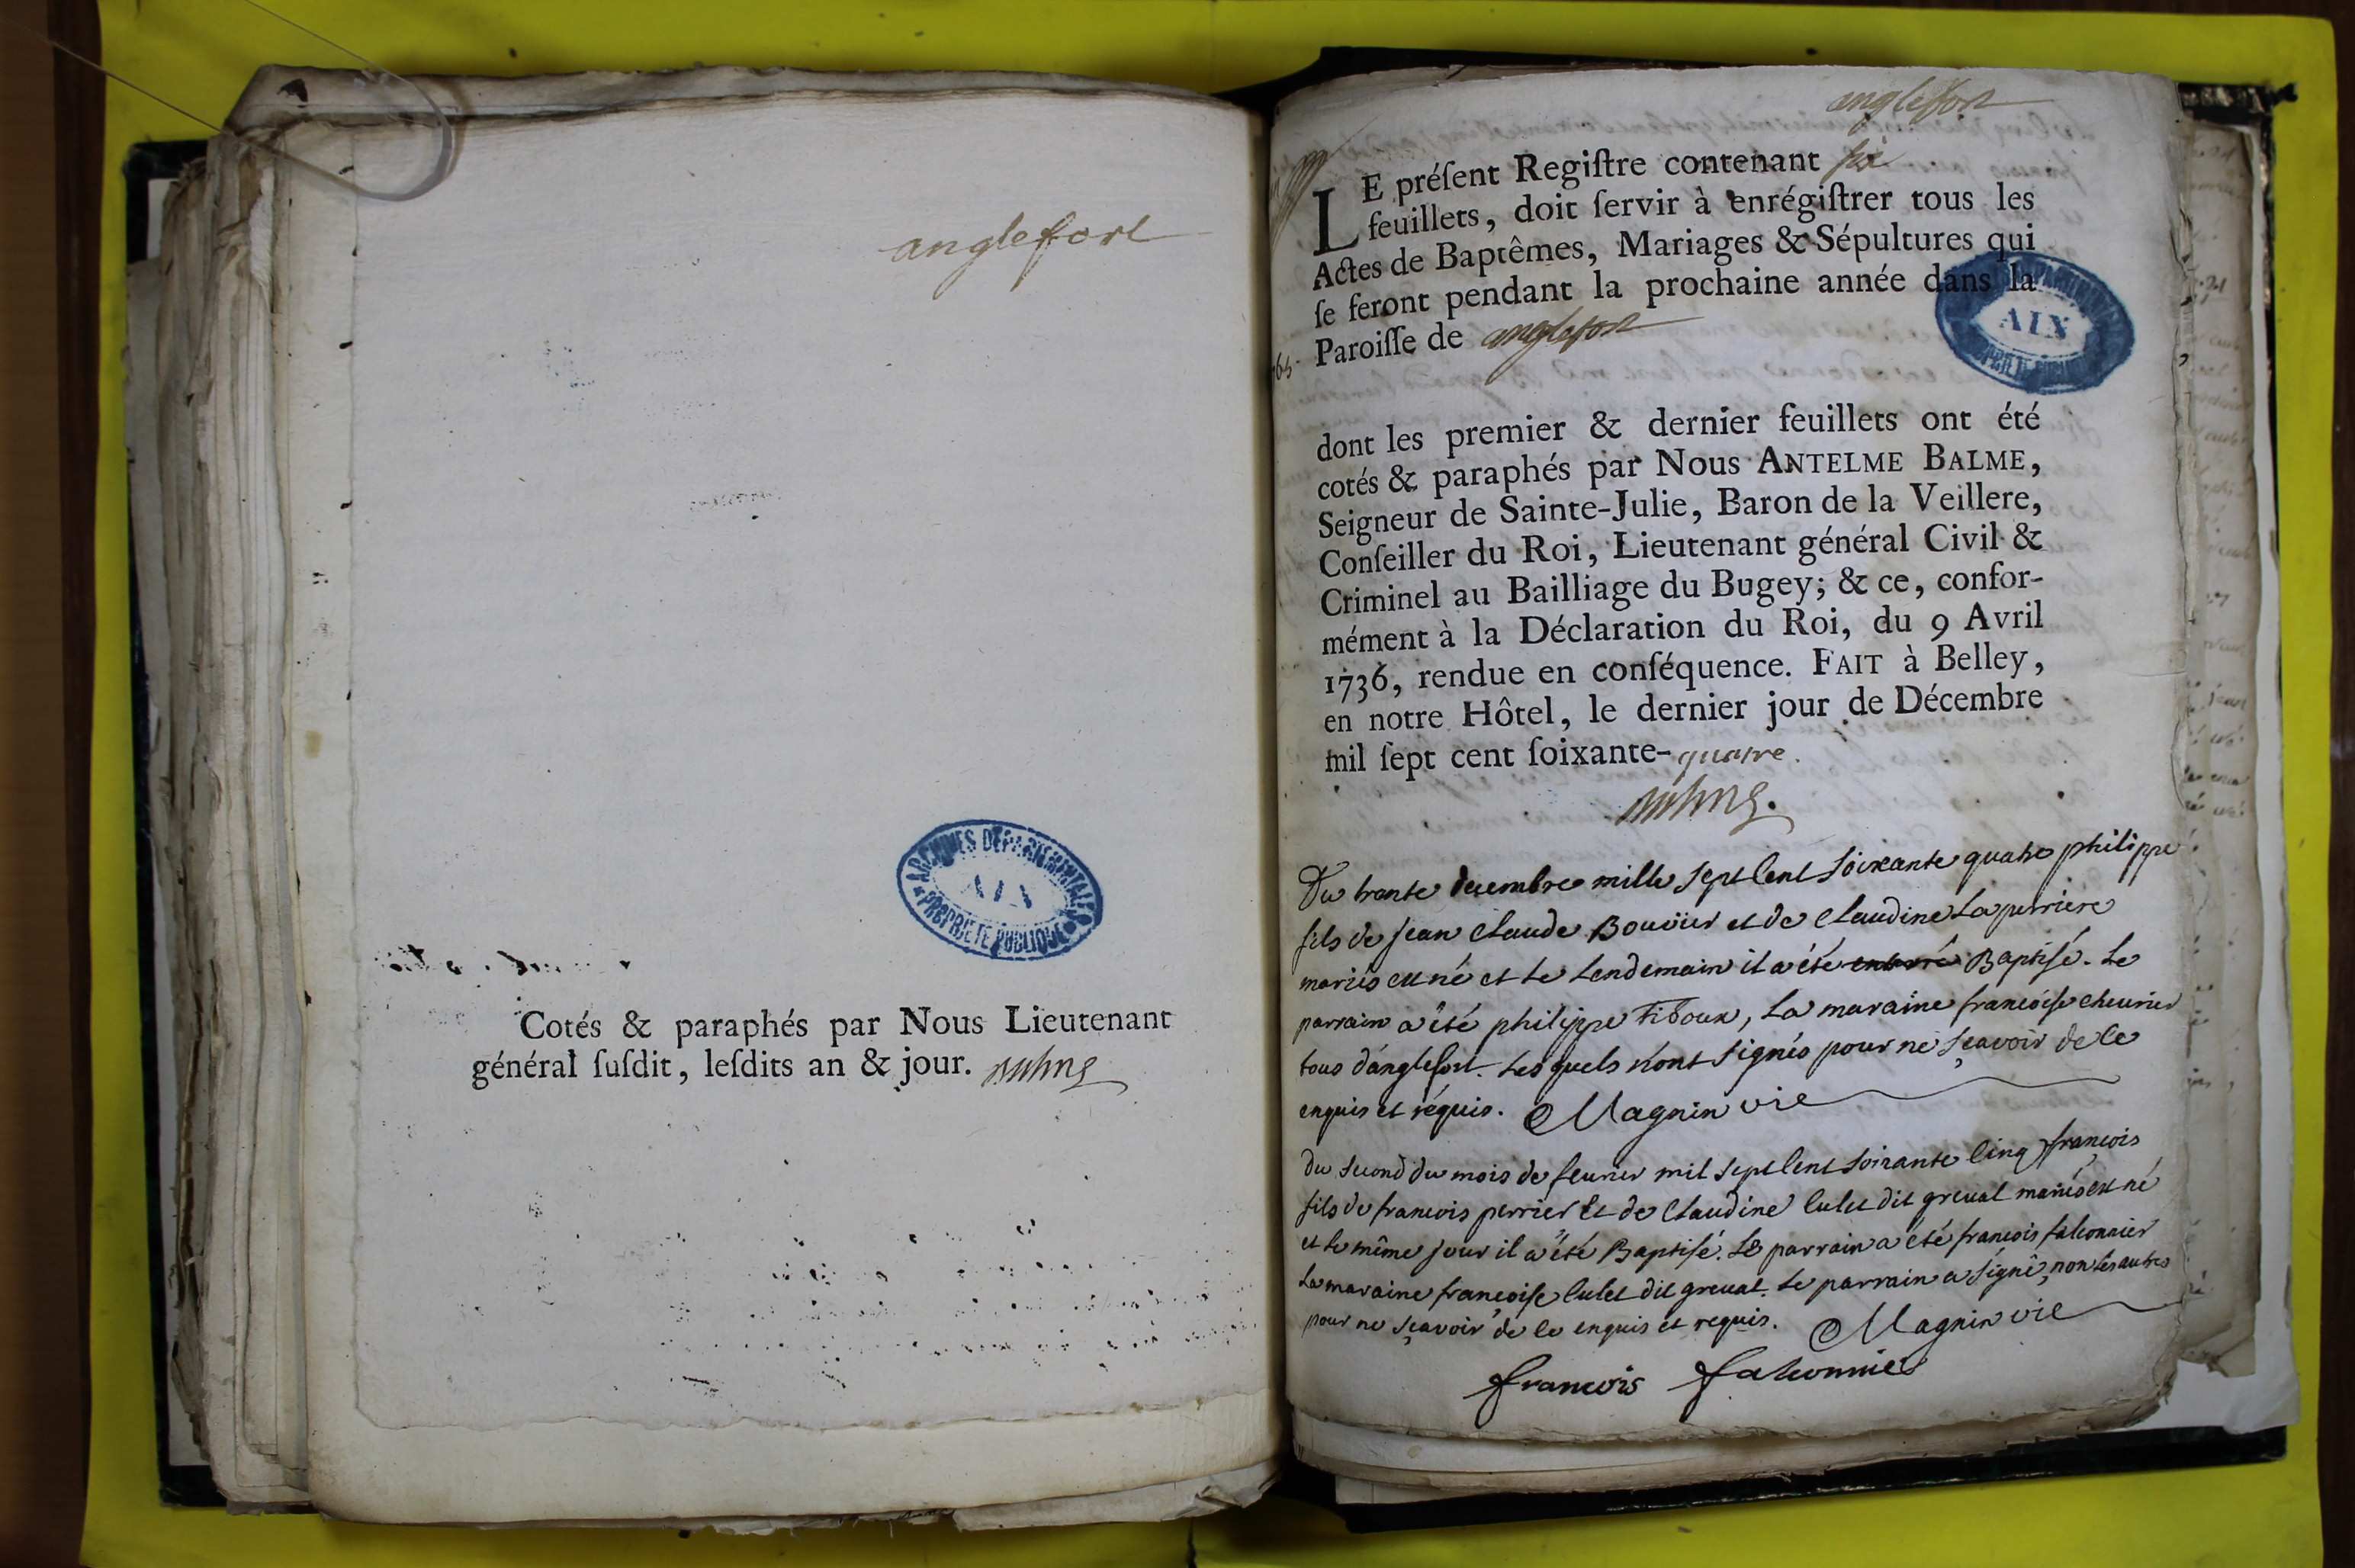 anglefort
ARCHIVES DÉPARTEMENTALES
AIN
PROPRIETE PUBLIQUE
Cotés & paraphés par Nous Lieutenant
général ſuſdit, leſdits an & jour.
angleffort
LE préſent Regiſtre contenant six
feuillets, doit ſervir à enrégiſtrer tous les
Actes de Baptêmes, Mariages & Sépultures qui
ſe feront pendant la prochaine année dans la
Paroiſſe de anglefort
AIN
dont les premier & dernier feuillets ont été
cotés & paraphés par Nous ANTELME BALME,
Seigneur de Sainte-Julie, Baron de la Veillere,
Conſeiller du Roi, Lieutenant général Civil &
Criminel au Bailliage du Bugey; & ce, confor-
mément à la Déclaration du Roi, du 9 Avril
1736, rendue en conſéquence. FAIT à Belley,
en notre Hôtel, le dernier jour de Décembre
mil ſept cent ſoixante-quatre.
Du trante decembre mille sept cent soixante quatre philippe
fils de jean claude Bouvier et de claudine Laperriere
mariés est né et le lendemain il a été enterré Baptisé. Le
parrain a été philippe Fidoux, La maraine francoise chevrier
tous d'anglefort. Lesquels n'ont signés pour ne sçavoir de ce
enquis et requis. Magnin vic
du second du mois de fevrier mil sept cent soixante cinq françois
fils de francois perrier et de Claudine Culet dit greval mariés est né
et le même jour il a été Baptisé. Le parrain a été francois falconnier
La maraine francoise Culet dit greval. Le parrain a signé, non les autres
pour ne sçavoir de ce enquis et requis. Magnin vic
francois falconnier